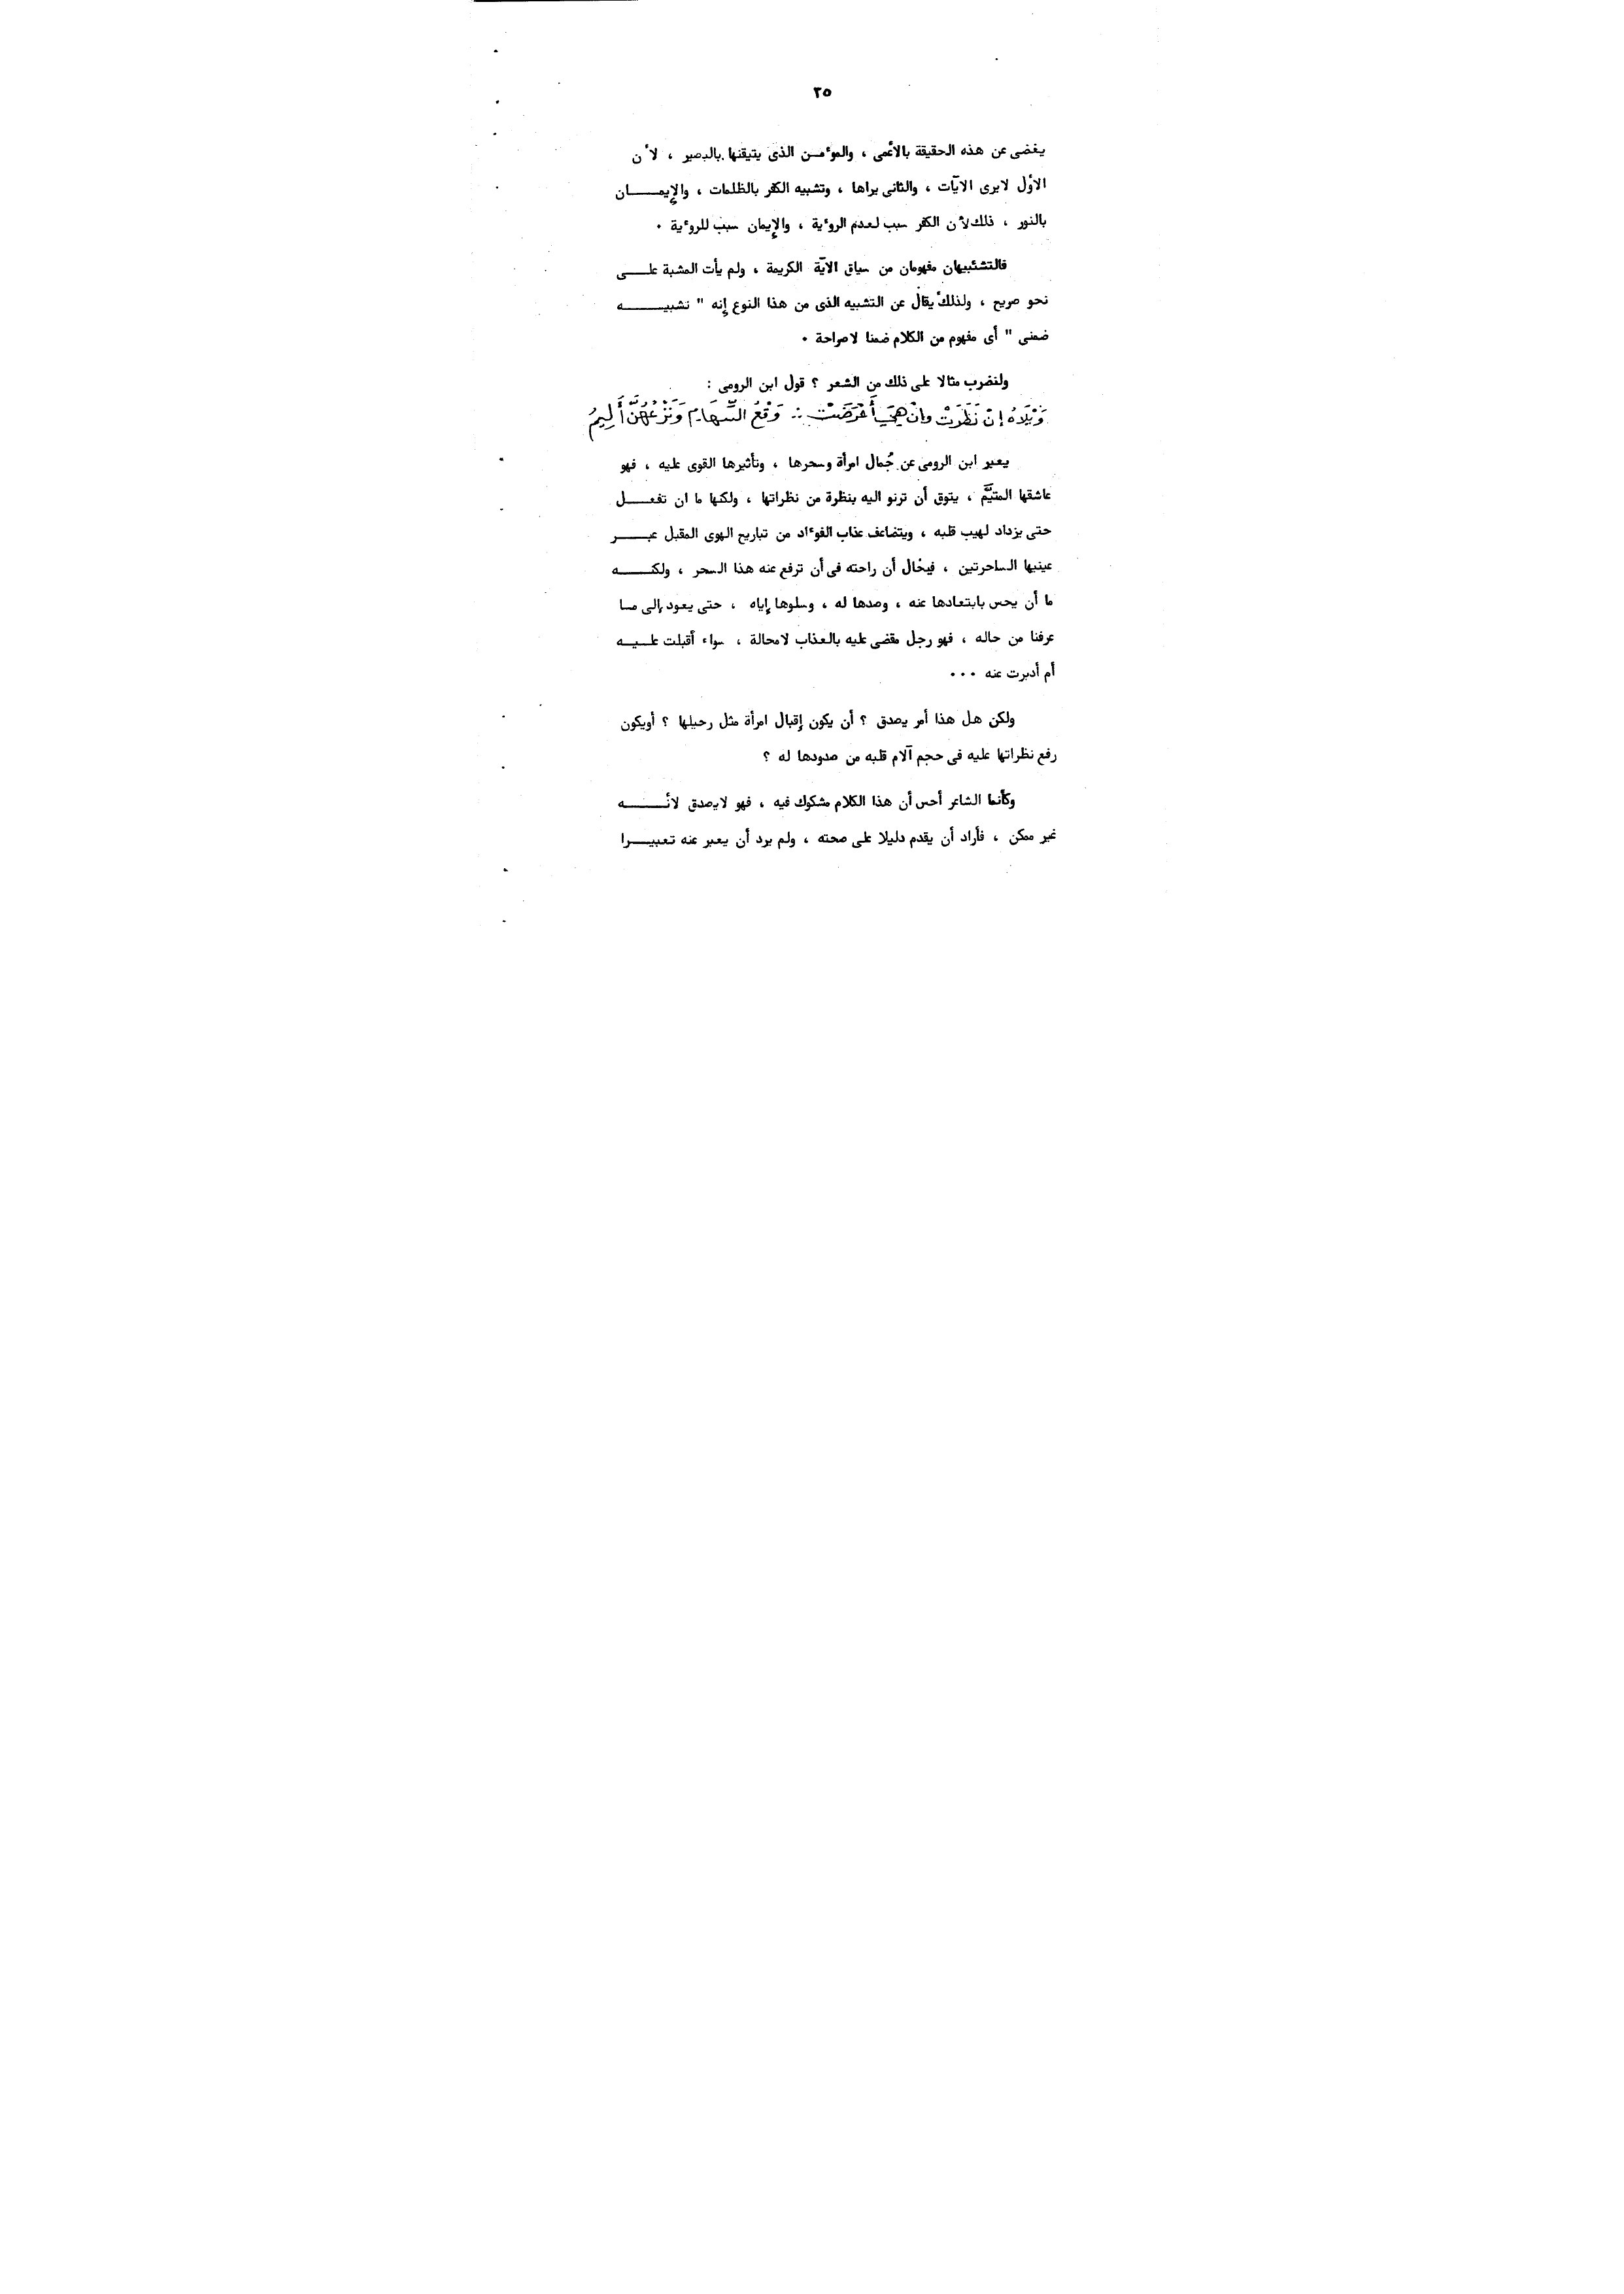 ٢٥
يغضى عن هذه الحقيقة بالأعمى ، والموٴمـن الذى يتيقنها بالبصير ، لأن
الأول لايرى الآيات ، والثانى يراها ، وتشبيه الكفر بالظلمات ، والإيمـــــان
بالنور ، ذلك لأن الكفر سبب لعدم الروٴية ، والإيمان سبب للروٴية ٠
فالتشئبيهان مفهومان من سياق الآية الكريمة ، ولم يأت المشبة علـــى
نحو صريح ، ولذلك يقال عن التشبيه الذى من هذا النوع إنه " تشبيـــــــه
ضمنى " أى مفهوم من الكلام ضمنا لاصراحة ٠
ولنضرب مثالا على ذلك من الشعر ؟ قول ابن الرومى :
وَيْلَاهُ إنْ نَظَرَتْ وانْ هِيَ أَعْرَضَتْ :: وَقْعُ السِّهَامِ وَنَزْعُهُنَّ أَلِيمُ
يعبر ابن الرومى عن جُمال امرأة وسحرها ، وتأثيرها القوى عليه ، فهو
عاشقها المتيَّم ، يتوق أن ترنو اليه بنظرة من نظراتها ، ولكنها ما ان تفعـــــل
حتى يزداد لهيب قلبه ، ويتضاعف عذاب الفوٴاد من تباريح الهوى المقبل عبـــــر
عينيها الساحرتين ، فيخال أن راحته فى أن ترفع عنه هذا السحر ، ولكنـــــه
ما أن يحس بابتعادها عنه ، وصدها له ، وسلوها إياه ، حتى يعود إلى مـا
عرفنا من حاله ، فهو رجل مقضى عليه بالعذاب لامحالة ، سواء أقبلت علـيـــه
أم أدبرت عنه ٠٠٠
ولكن هل هذا أمر يصدق ؟ أن يكون إقبال امرأة مثل رحيلها ؟ أويكون
رفع نظراتها عليه فى حجم آلام قلبه من صدودها له ؟
وكأنما الشاعر أحس أن هذا الكلام مشكوك فيه ، فهو لايصدق لأنـــــــه
غير ممكن ، فأراد أن يقدم دليلا على صحته ، ولم يرد أن يعبر عنه تعبيـــــرا